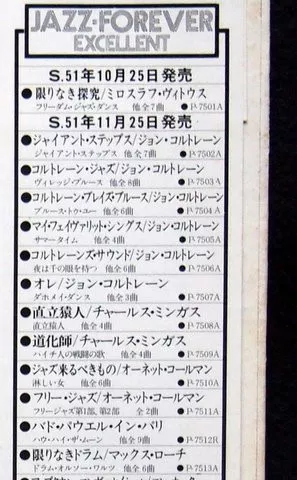 JAZZ・FOREVER
EXCELLENT
S.51年10月25日発売
●限りなき探究/ミロスラフ・ヴィトウス
フリーダム・ジャズ・ダンス 他全7曲 ●P-7501A
S.51年11月25日発売
●ジャイアント・ステップス/ジョン・コルトレーン
ジャイアント・ステップス 他全7曲 ●P-7502A
●コルトレーン・ジャズ/ジョン・コルトレーン
ヴィレッジ・ブルース 他全8曲 ●P-7503A
●コルトレーン・プレイズ・ブルース/ジョン・コルトレーン
ブルース・トゥ・ユー 他全6曲 ●P-7504A
●マイ・フェイヴァリット・シングス/ジョン・コルトレーン
サマータイム 他全4曲 ●P-7505A
●コルトレーンズ・サウンド/ジョン・コルトレーン
夜は千の眼を持つ 他全6曲 ●P-7506A
●オレ/ジョン・コルトレーン
ダホメイ・ダンス 他全3曲 ●P-7507A
●直立猿人/チャールス・ミンガス
直立猿人 他全4曲 ●P-7508A
●道化師/チャールス・ミンガス
ハイチ人の戦闘の歌 他全4曲 ●P-7509A
●ジャズ来るべきもの/オーネット・コールマン
淋しい女 他全6曲 ●P-7510A
●フリー・ジャズ/オーネット・コールマン
フリージャズ第1部、第2部 全2曲 ●P-7511A
●バド・パウエル・イン・パリ
ハウ・ハイ・ザ・ムーン 他全9曲 ●P-7512R
●限りなきドラム/マックス・ローチ
ドラム・オルソー・ワルツ 他全6曲 ●P-7513A